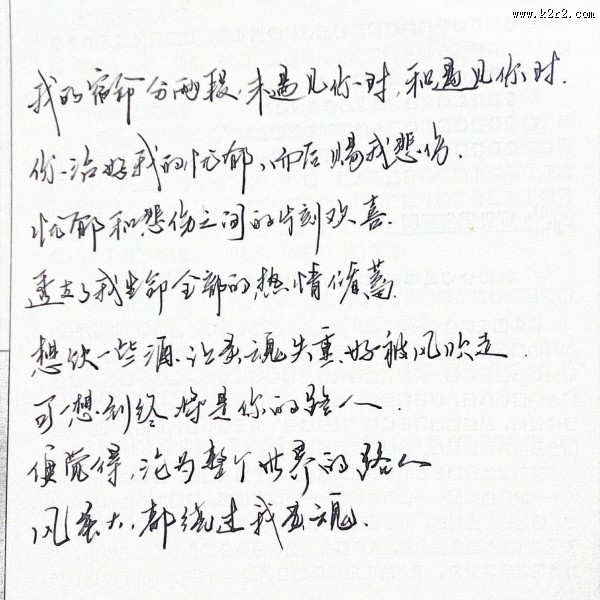 www.k2r2.com
我的宿命分两段，未遇见你时，和遇见你时．
你治好我的忧郁，而后赐我悲伤．
忧郁和悲伤之间的片刻欢喜．
透支了我生命全部的热情储蓄．
想饮一些酒．让灵魂失重．好被风吹走．
可一想到终将是你的路人．．
便觉得，沦为整个世界的路人
风虽大，都绕过我灵魂．